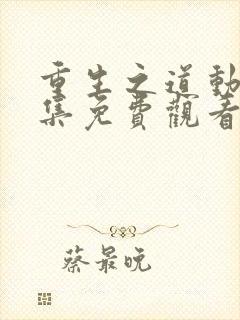 重生之道動
集免費觀看
蔡最晚